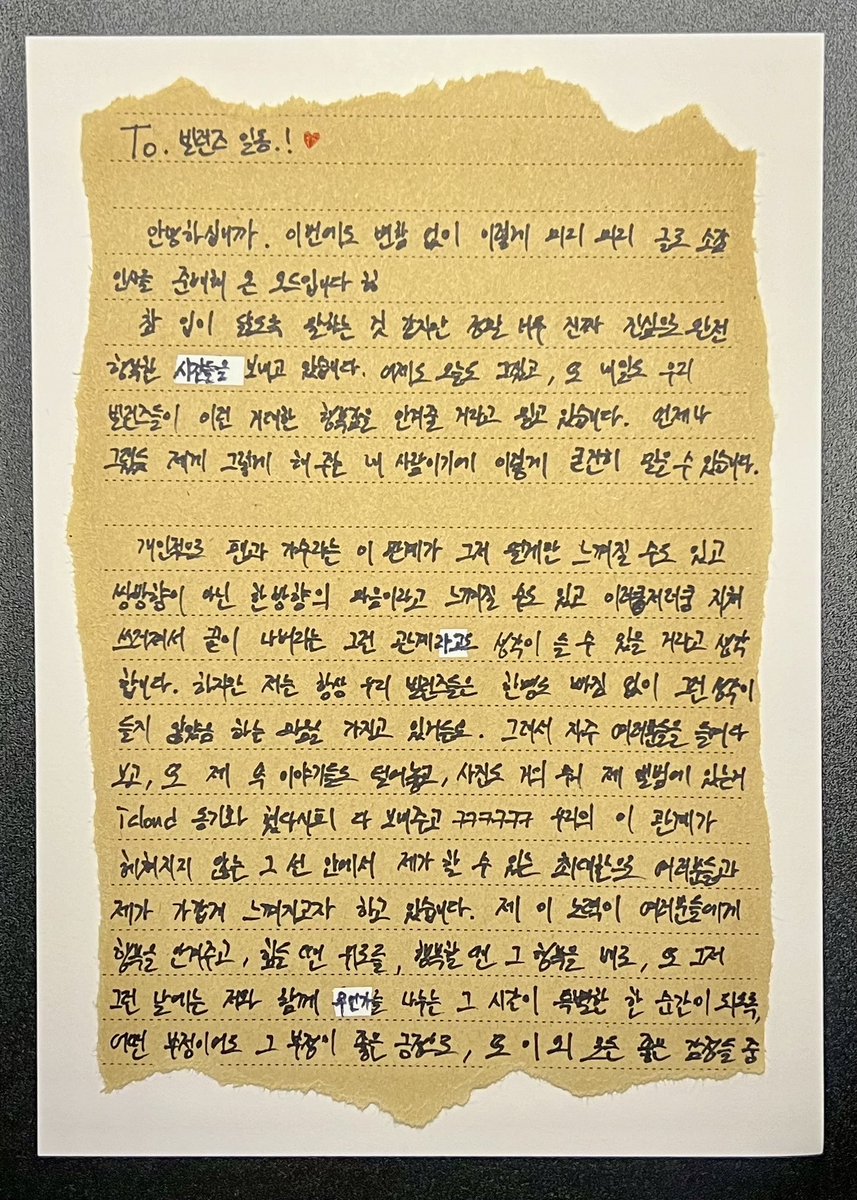 To. 빌런즈 일동.! ♥
안녕하십니까. 이번에도 변함 없이 이렇게 미리 미리 글로 소감
인사를 준비해 온 오드입니다 힣
참 입이 닳도록 말하는 것 같지만 정말 너무 진짜 진심으로 완전
행복한 시간들을 보내고 있습니다. 어제도 오늘도 그랬고, 또 내일도 우리
빌런즈들이 이런 거대한 행복감을 안겨줄 거라고 믿고 있습니다. 언제나
그랬듯 제게 그렇게 해 주는 내 사람이기에 이렇게 굳건히 믿을 수 있습니다.
개인적으로 팬과 가수라는 이 관계가 그저 멀게만 느껴질 수도 있고
쌍방향이 아닌 한방향의 마음이라고 느껴질 수도 있고 이러쿵저러쿵 지쳐
쓰러져서 끝이 나버리는 그런 관계라고도 생각이 들 수 있을 거라고 생각
합니다. 하지만 저는 항상 우리 빌런즈들은 한명도 빠짐 없이 그런 생각이
들지 않았음 하는 마음을 가지고 있거든요. 그래서 자주 여러분들을 들여다
보고, 또 제 속 이야기들도 털어놓고, 사진도 거의 뭐 제 앨범에 있는거
icloud 동기화 했다시피 다 보내주고 ㅋㅋㅋㅋㅋㅋ 우리의 이 관계가
헤쳐지지 않는 그 선 안에서 제가 할 수 있는 최대한으로 여러분들과
제가 가깝게 느껴지고자 하고 있습니다. 제 이 노력이 여러분들에게
행복을 안겨주고, 힘들 땐 위로를, 행복할 땐 그 행복을 배로, 또 그저
그런 날에는 저와 함께 무언가를 나누는 그 시간이 특별한 한 순간이 되도록,
어떤 부정이어도 그 부정이 좋은 긍정으로, 또 이 외 모든 좋은 감정들 중